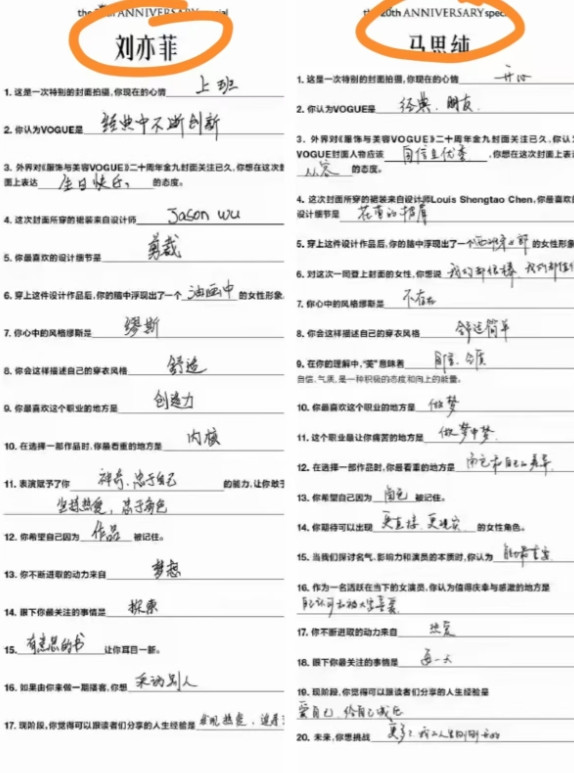 the 20th ANNIVERSARY special
刘亦菲
1. 这是一次特别的封面拍摄,你现在的心情 上班
2. 你认为VOGUE是 经典中不断创新
3. 外界对《服饰与美容VOGUE》二十周年金九封面关注已久,你想在这次封
面上表达 生日快乐 的态度。
4. 这次封面所穿的裙装来自设计师 Jason Wu
5. 你最喜欢的设计细节是 剪裁
6. 穿上这件设计作品后,你的脑中浮现出了一个 油画中 的女性形象
7. 你心中的风格缪斯是 缪斯
8. 你会这样描述自己的穿衣风格 舒适
9. 你最喜欢这个职业的地方是 创造力
10. 在选择一部作品时,你最看重的地方是 内核
11. 表演赋予了你 神奇、忠于自己 的能力,让你敢于
坚持热爱,忠于角色
12. 你希望自己因为 作品 被记住。
13. 你不断进取的动力来自 梦想
14. 眼下你最关注的事情是 探索
15. 有意思的书 让你耳目一新。
16. 如果由你来做一期播客,你想 采访别人
17. 现阶段,你觉得可以跟读者们分享的人生经验是 发现热爱,
the 20th ANNIVERSARY speci
马思纯
1. 这是一次特别的封面拍摄,你现在的心情 开心
2. 你认为VOGUE是 经典、朋友
3. 外界对《服饰与美容VOGUE》二十周年金九封面关注已久,你认
VOGUE封面人物应该 自信且优秀 ,你想在这次封面上表达
从容 的态度。
4. 这次封面所穿的裙装来自设计师Louis Shengtao Chen,你最喜欢
设计细节是 花苞的裙摆
5. 穿上这件设计作品后,你的脑中浮现出了一个 的女性形象
6. 对这次一同登上封面的女性,你想说 我们都很棒,我们都值得
7. 你心中的风格缪斯是 不存在
8. 你会这样描述自己的穿衣风格 舒适简单
9. 在你的理解中,“美”意味着 自信、气质
自信、气质,是一种积极的态度和向上的能量。
10. 你最喜欢这个职业的地方是 做梦
11. 这个职业最让你痛苦的地方是 做梦中梦
12. 在选择一部作品时,你最看重的地方是 角色和自己的
13. 你希望自己因为 角色 被记住。
14. 你期待可以出现 更直接、更现实 的女性角色。
15. 当我们探讨名气、影响力和演员的本质时,你认为
16. 作为一名活跃在当下的女演员,你认为值得庆幸与感激的地方是
17. 你不断进取的动力来自 热爱
18. 眼下你最关注的事情是 每一天
19. 现阶段,你觉得可以跟读者们分享的人生经验是
爱自己,给自己
20. 未来,你想挑战 更多!